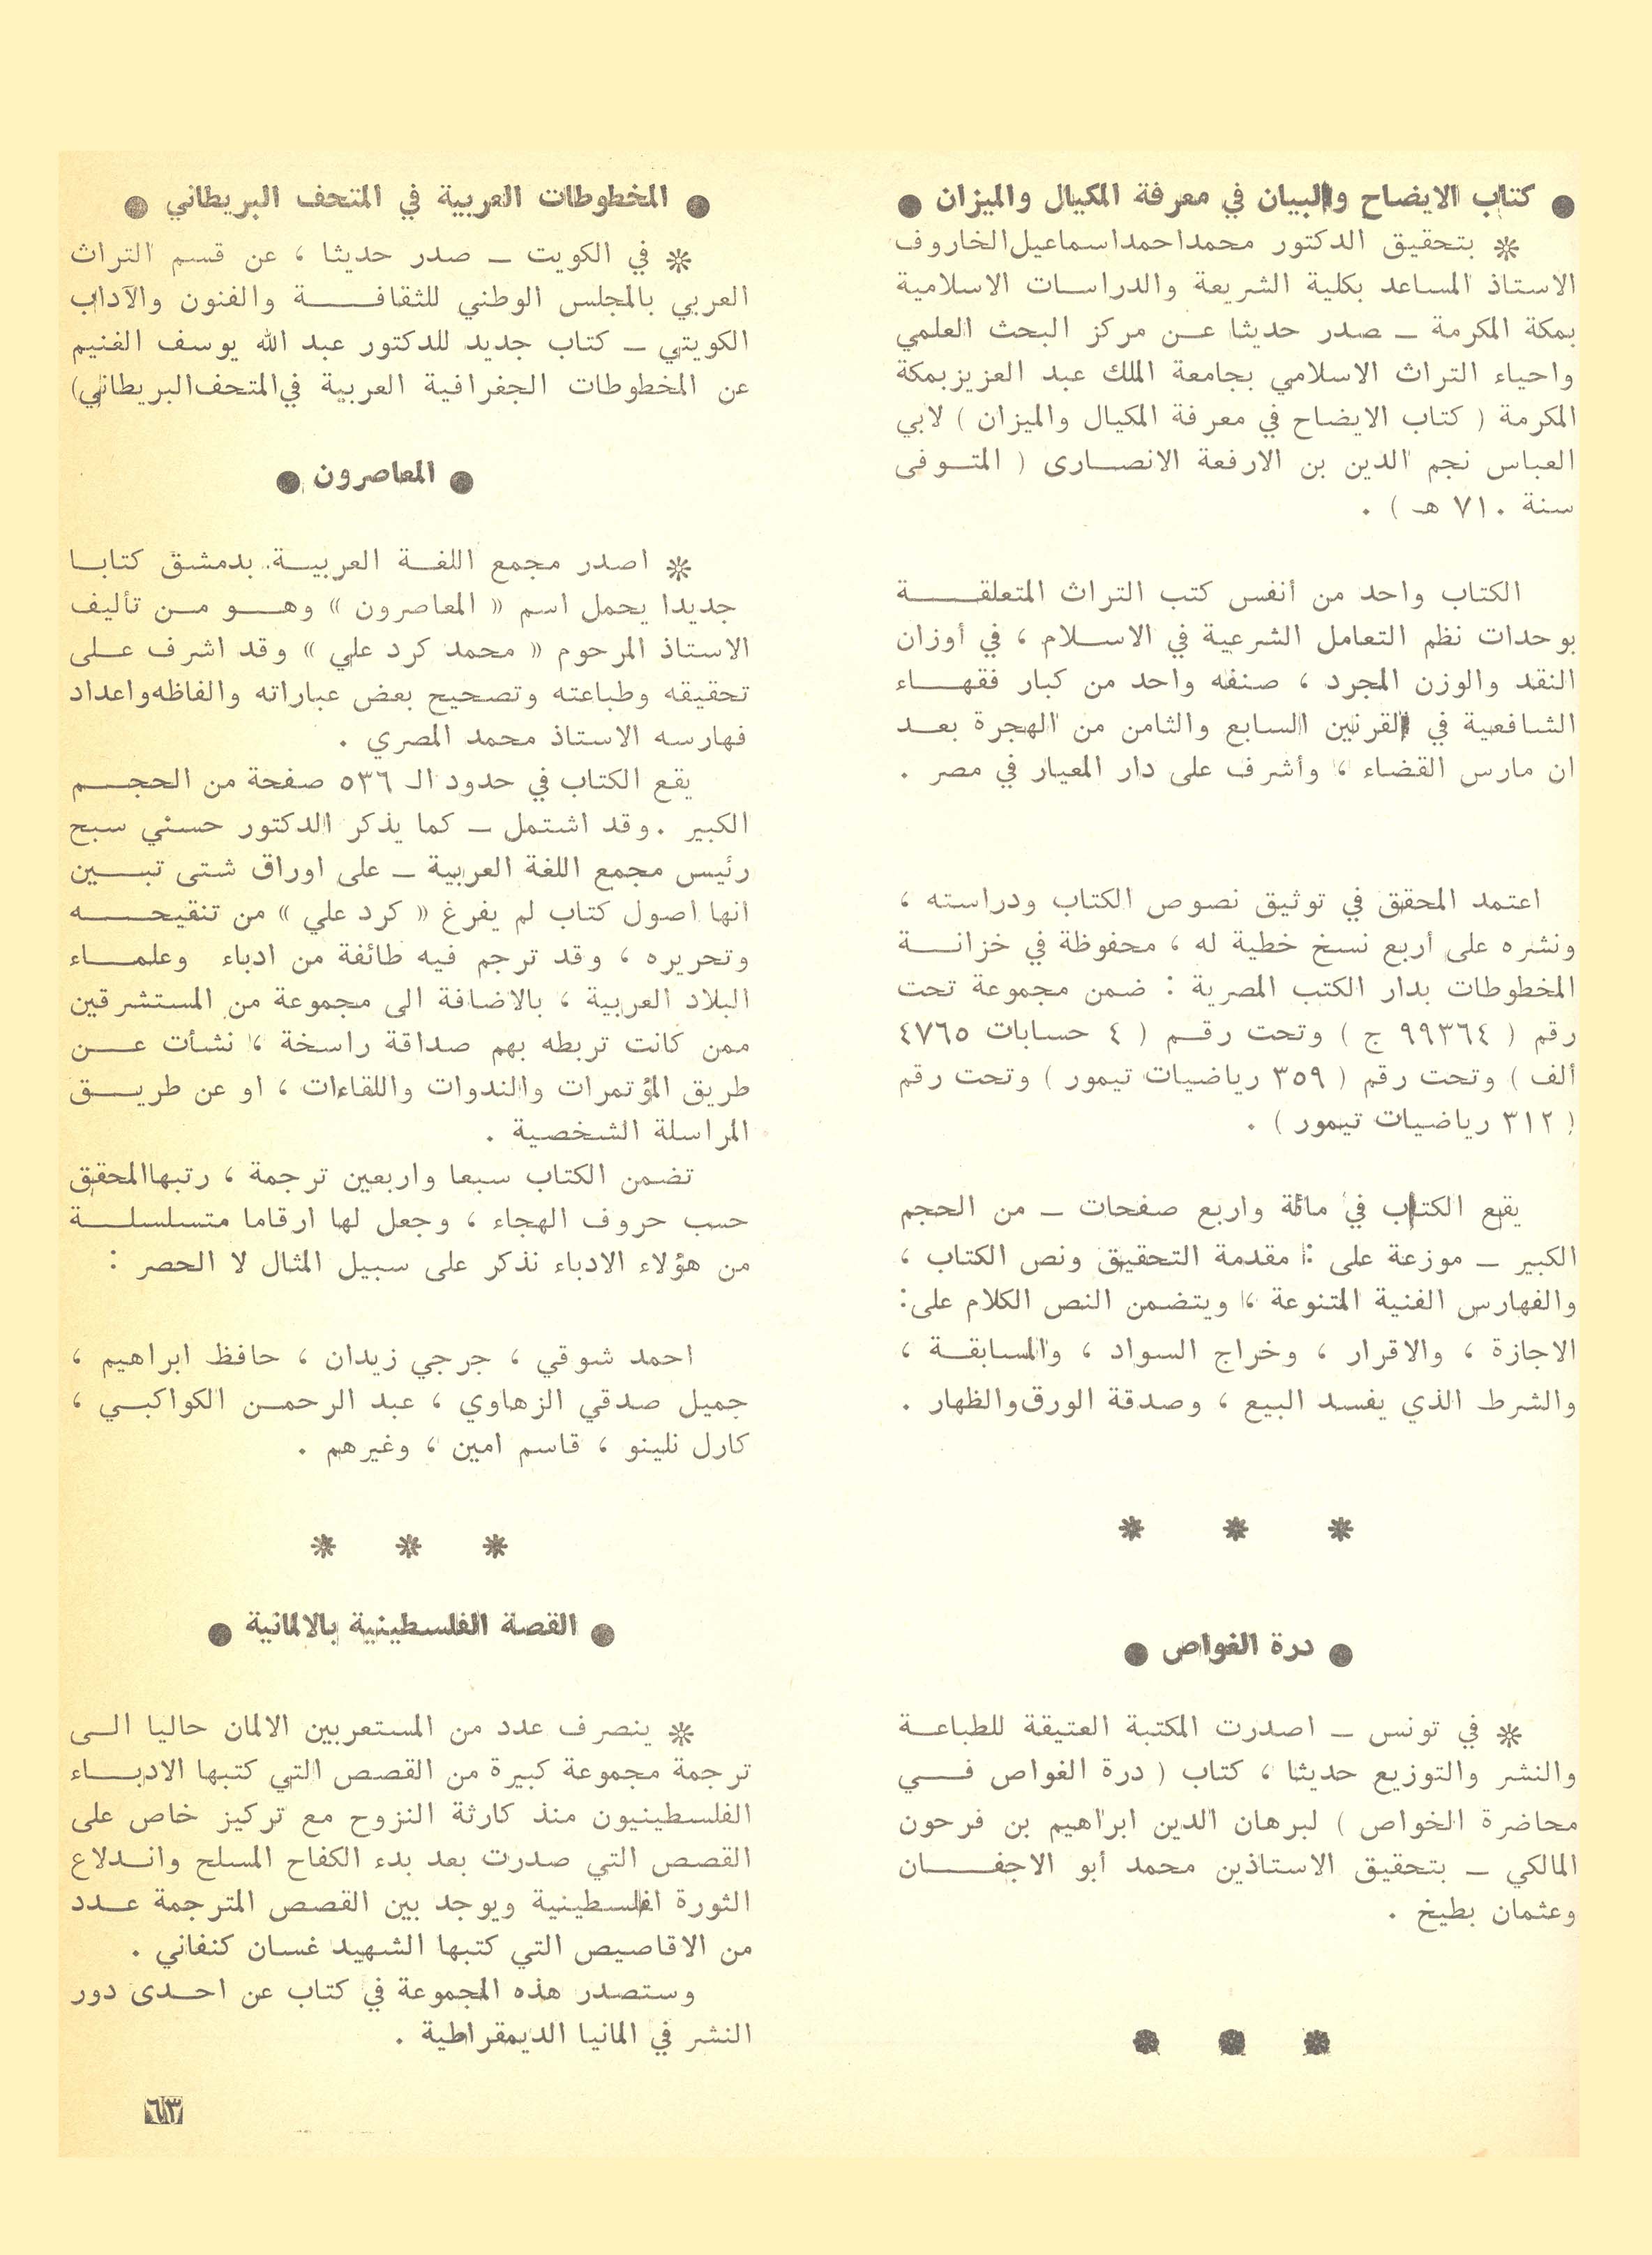 ● كتاب الايضاح والبيان في معرفة المكيال والميزان ●
❊ بتحقيق الدكتور محمد احمد اسماعيل الخاروف
الاستاذ المساعد بكلية الشريعة والدراسات الاسلامية
بمكة المكرمة ــ صدر حديثا عن مركز البحث العلمي
واحياء التراث الاسلامي بجامعة الملك عبد العزيز بمكة
المكرمة ( كتاب الايضاح في معرفة المكيال والميزان ) لابي
العباس نجم الدين بن الارفعة الانصارى ( المتوفى
سنة ٧١٠ هـ ) .
الكتاب واحد من أنفس كتب التراث المتعلقة
بوحدات نظم التعامل الشرعية في الاسلام ، في أوزان
النقد والوزن المجرد ، صنفه واحد من كبار فقهاء
الشافعية في القرنين السابع والثامن من الهجرة بعد
ان مارس القضاء ، وأشرف على دار المعيار في مصر .
اعتمد المحقق في توثيق نصوص الكتاب ودراسته ،
ونشره على أربع نسخ خطية له ، محفوظة في خزانة
المخطوطات بدار الكتب المصرية : ضمن مجموعة تحت
رقم ( ٩٩٣٦٤ ج ) وتحت رقم ( ٤ حسابات ٤٧٦٥
ألف ) وتحت رقم ( ٣٥٩ رياضيات تيمور ) وتحت رقم
( ٣١٢ رياضيات تيمور ) .
يقع الكتاب في مائة واربع صفحات ــ من الحجم
الكبير ــ موزعة على : مقدمة التحقيق ونص الكتاب ،
والفهارس الفنية المتنوعة ، ويتضمن النص الكلام على :
الاجازة ، والاقرار ، وخراج السواد ، والمسابقة ،
والشرط الذي يفسد البيع ، وصدقة الورق والظهار .
* * *
● درة الغواص ●
❊ في تونس ــ اصدرت المكتبة العتيقة للطباعة
والنشر والتوزيع حديثا ، كتاب ( درة الغواص في
محاضرة الخواص ) لبرهان الدين ابراهيم بن فرحون
المالكي ــ بتحقيق الاستاذين محمد أبو الاجفان
وعثمان بطيخ .
● المخطوطات العربية في المتحف البريطاني ●
❊ في الكويت ــ صدر حديثا ، عن قسم التراث
العربي بالمجلس الوطني للثقافة والفنون والآداب
الكويتي ــ كتاب جديد للدكتور عبد الله يوسف الغنيم
عن المخطوطات الجغرافية العربية في المتحف البريطاني)
● المعاصرون ●
❊ اصدر مجمع اللغة العربية بدمشق كتابا
جديدا يحمل اسم « المعاصرون » وهو من تأليف
الاستاذ المرحوم « محمد كرد علي » وقد اشرف على
تحقيقه وطباعته وتصحيح بعض عباراته والفاظه واعداد
فهارسه الاستاذ محمد المصري .
يقع الكتاب في حدود الـ ٥٣٦ صفحة من الحجم
الكبير . وقد اشتمل ــ كما يذكر الدكتور حسني سبح
رئيس مجمع اللغة العربية ــ على اوراق شتى تبين
انها اصول كتاب لم يفرغ « كرد علي » من تنقيحه
وتحريره ، وقد ترجم فيه طائفة من ادباء وعلماء
البلاد العربية ، بالاضافة الى مجموعة من المستشرقين
ممن كانت تربطه بهم صداقة راسخة ، نشأت عن
طريق المؤتمرات والندوات واللقاءات ، او عن طريق
المراسلة الشخصية .
تضمن الكتاب سبعا واربعين ترجمة ، رتبها المحقق
حسب حروف الهجاء ، وجعل لها ارقاما متسلسلة
من هؤلاء الادباء نذكر على سبيل المثال لا الحصر :
احمد شوقي ، جرجي زيدان ، حافظ ابراهيم ،
جميل صدقي الزهاوي ، عبد الرحمن الكواكبي ،
كارل نلينو ، قاسم امين ، وغيرهم .
* * *
● القصة الفلسطينية بالالمانية ●
❊ ينصرف عدد من المستعربين الالمان حاليا الى
ترجمة مجموعة كبيرة من القصص التي كتبها الادباء
الفلسطينيون منذ كارثة النزوح مع تركيز خاص على
القصص التي صدرت بعد بدء الكفاح المسلح واندلاع
الثورة افلسطينية ويوجد بين القصص المترجمة عدد
من الاقاصيص التي كتبها الشهيد غسان كنفاني .
وستصدر هذه المجموعة في كتاب عن احدى دور
النشر في المانيا الديمقراطية .
٦٣